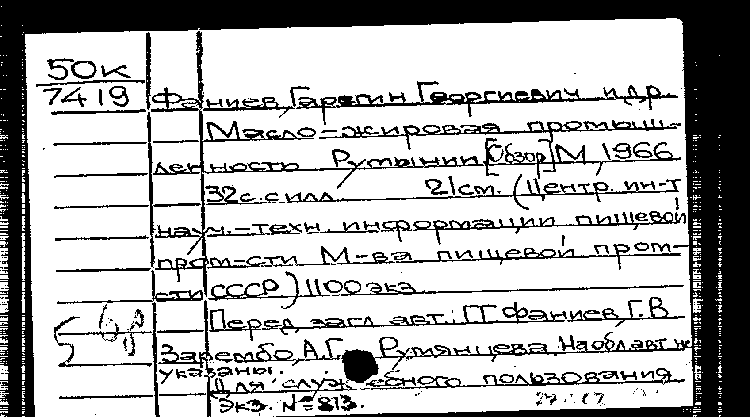 50К
7419
Фаниев, Гарегин Георгиевич и др.
Масло-жировая промыш-
ленность Румынии [Обзор] М, 1966
32с. с илл. 21см. (Центр. ин-т
науч.-техн. информации пищевой
пром-сти М-ва пищевой пром-
сти СССР) 1100 экз
Перед загл. авт.: Г.Г. Фаниев, Г.В.
Зарембо, А.Г. Румянцева. На обл. авт. не
указаны.
Для служебного пользования
Экз. №813.